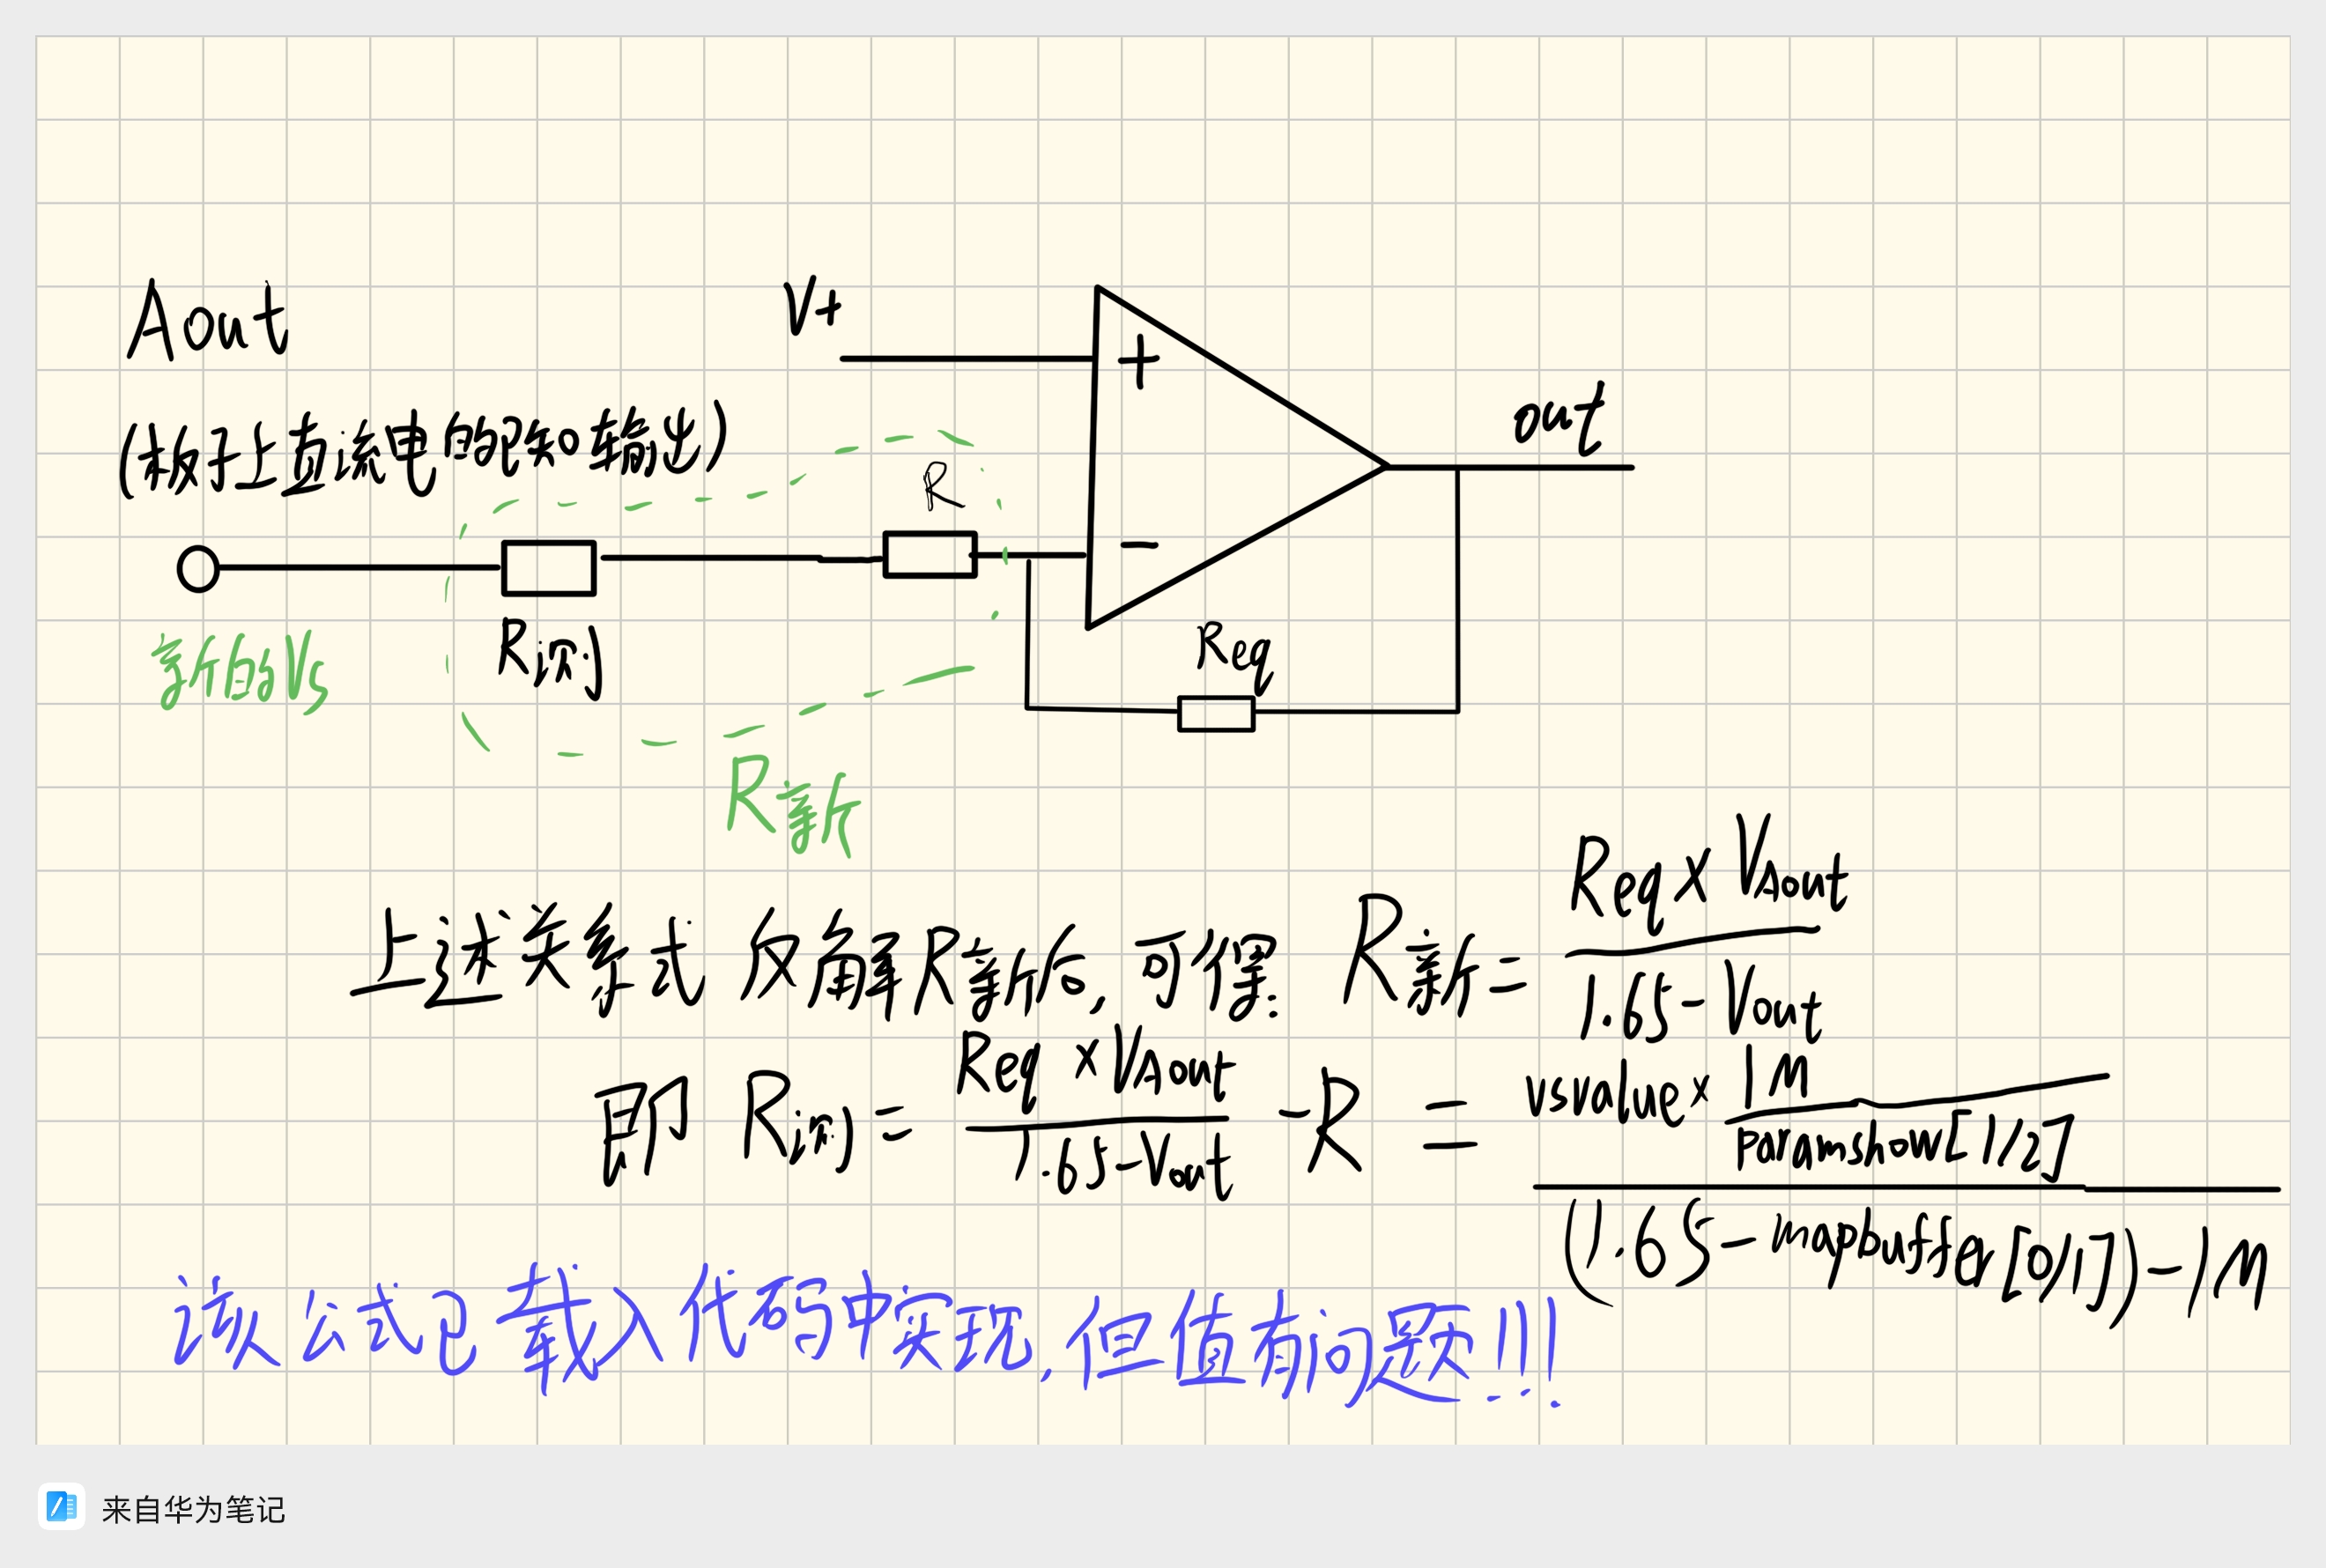 Aout
V+
+
out
(板子上直流电的已知输出)
R
-
新的Vs
R测
Req
R新
上述关系式仅解R新后,可得: R新 = Req × VAout / 1.65 - Vout
即 R测 = Req × VAout / 1.65 - Vout - R = vsvalue × 1M / paramshow[1/2] / (1.65 - mapbuffer[0/1]) - 1M
该公式已载入代码中实现,但值有问题!!!
来自华为笔记